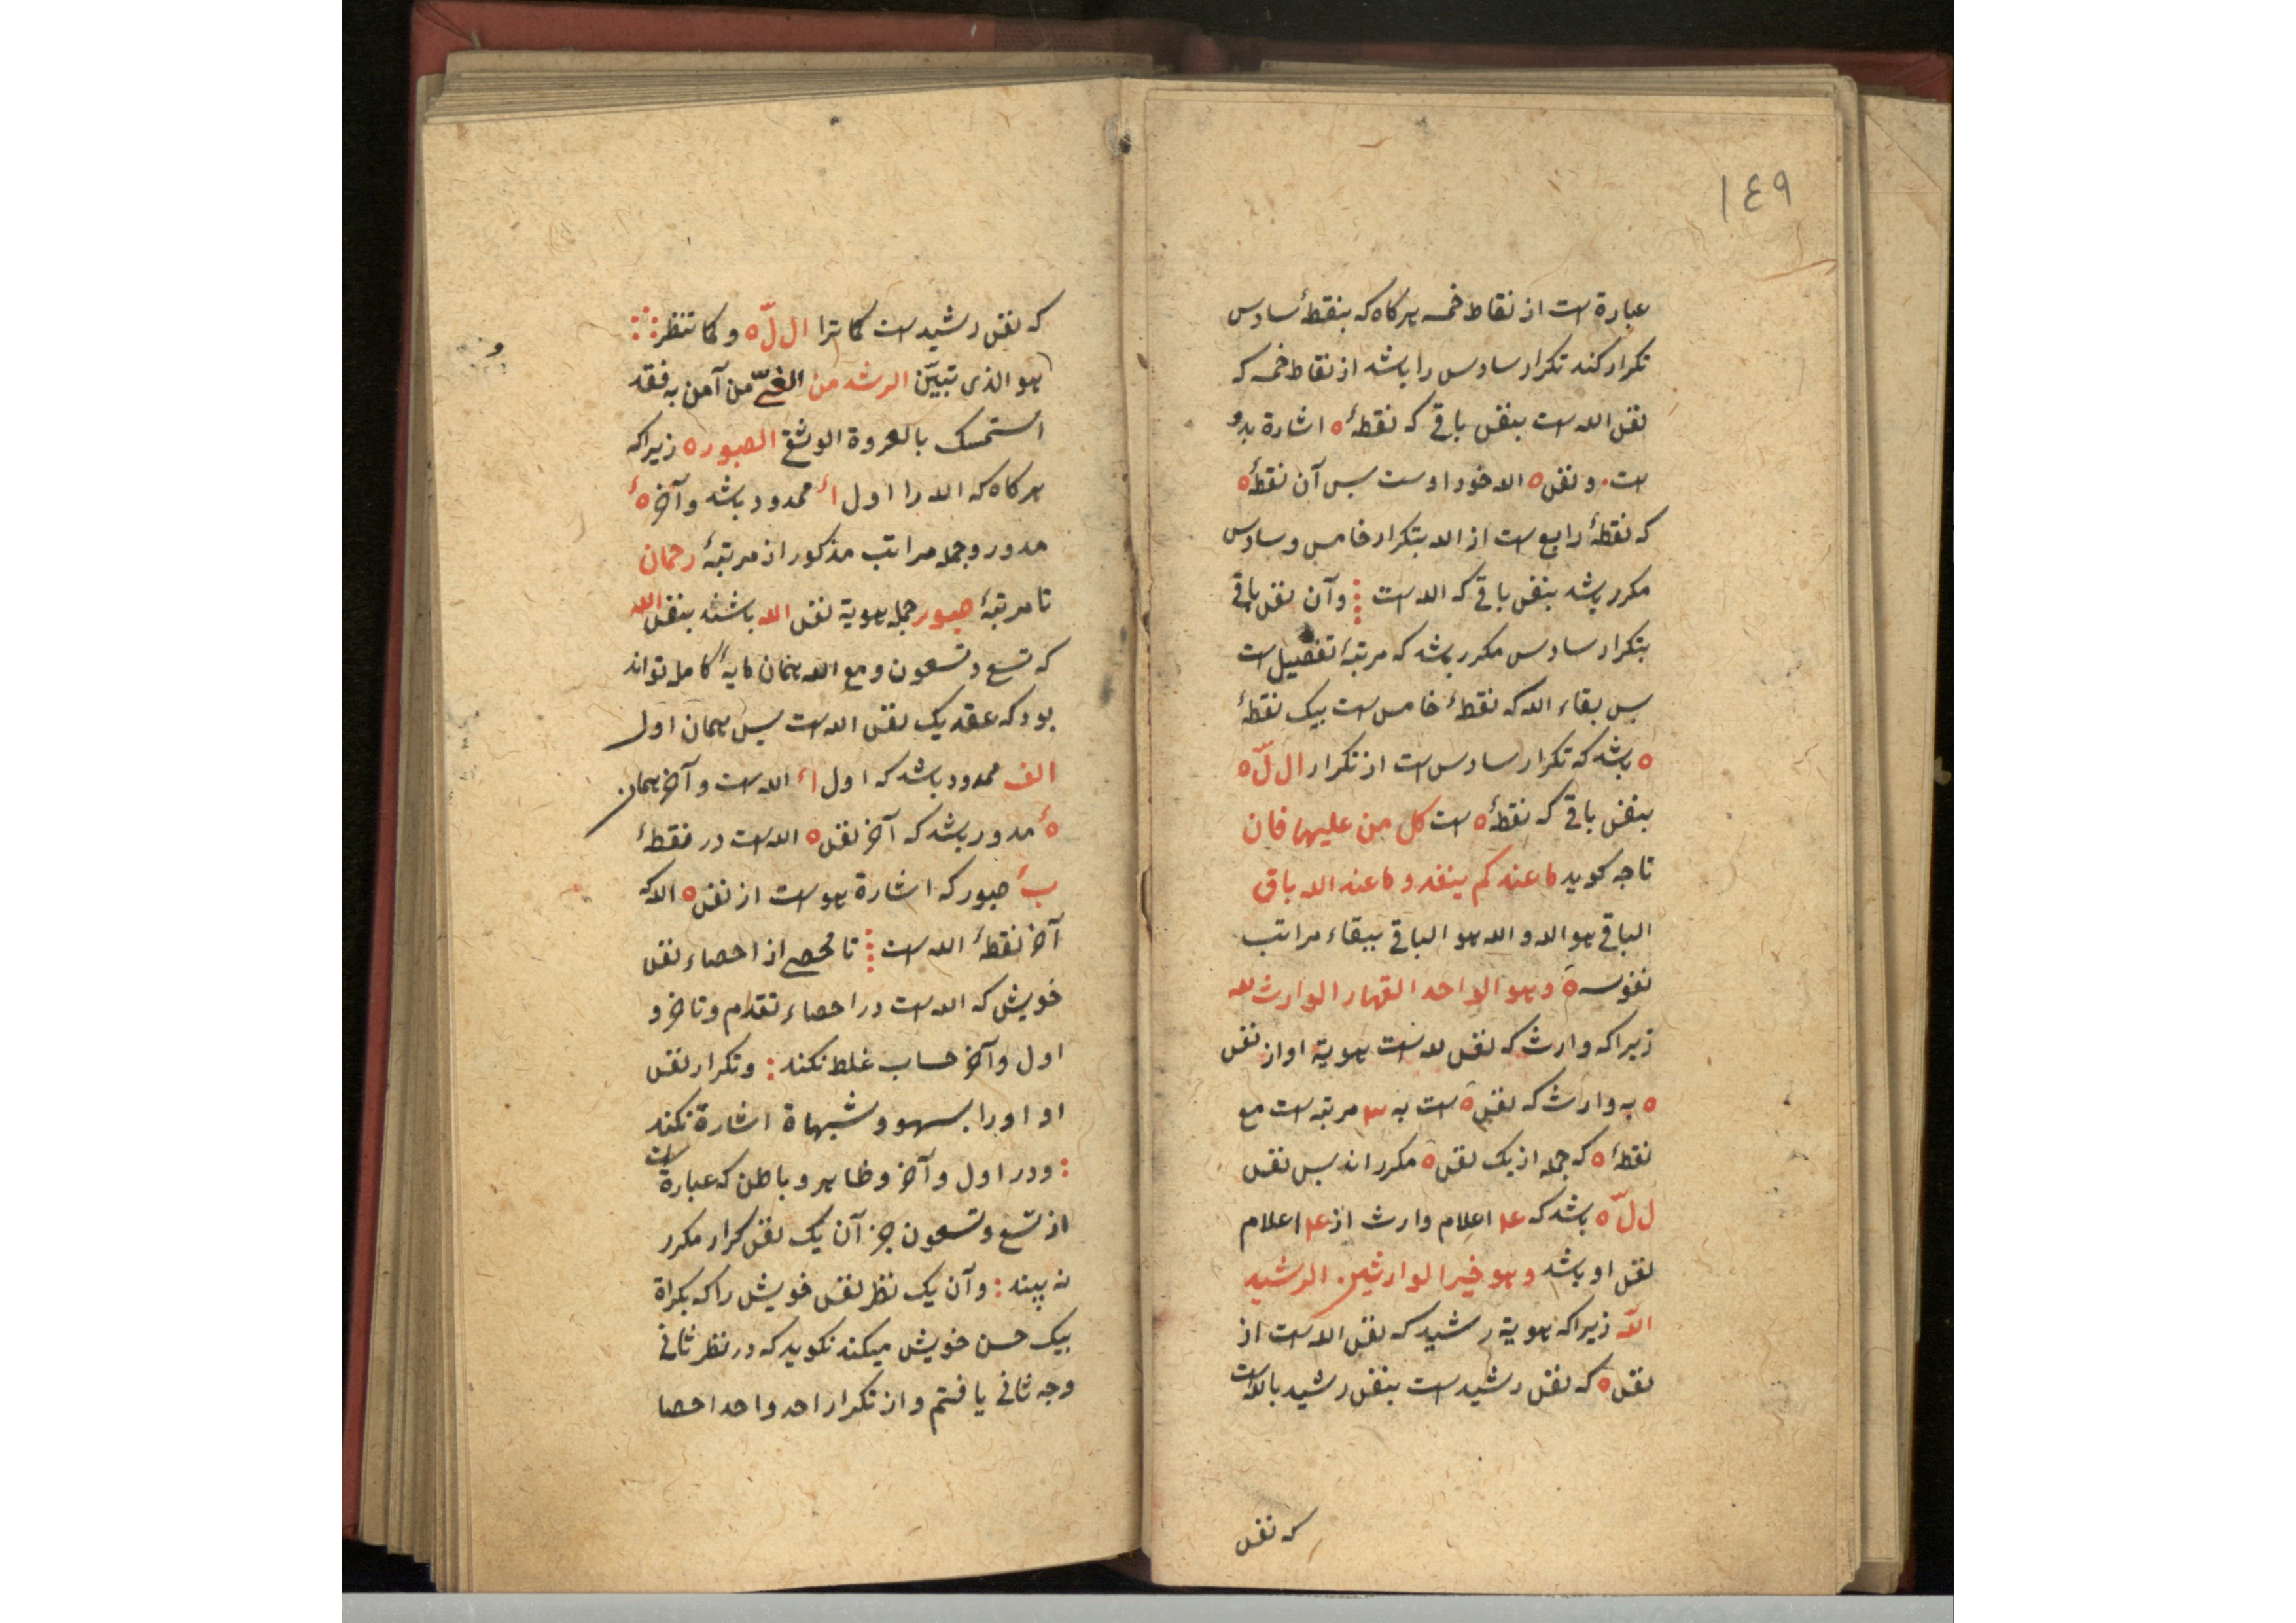 ١٤٩
عبارة است از نقاط خمسه هرکاه که بنقطهٔ سادس
تکرار کند تکرار سادس را باشد از نقاط خمسه که
نفس الله است بنفس باقی که نقطهٔ ه اشارة بدو
است و نفس ه الله خود اوست پس آن نقطهٔ ه
که نقطهٔ رابع است از الله بتکرار خامس و سادس
مکرر باشد بنفس باقی که الله است و آن نفس باقی
بتکرار سادس مکرر باشد که مرتبهٔ تفصیل است
پس بقاء الله که نقطهٔ خامس است بیک نقطهٔ
ه باشد که تکرار سادس است از تکرار ال لّ ه
بنفس باقی که نقطهٔ ه است کل من علیها فان
تا چه کوید ما عندکم ینفد و ما عند الله باق
الباقی هو الله و الله هو الباقی ببقاء مراتب
نفوسه و هو الواحد القهار الوارث لله
زیرا که وارث که نفس لله است هویة او از نفس
ه به وارث که نفس ه است به مرتبه است مع
نقطهٔ ه که جمله از یک نفس ه مکرر اند پس نفس
ل لّ ه باشد که اعلام وارث از اعلام
نفس او باشد و هو خیر الوارثین. الرشید
اللّه زیرا که هویة رشید که نفس الله است از
نفس ه که نفس رشید است بنفس رشید بالله است
که نفس
که نفس رشید است کما ترا ال لّ ه و کما تنظر
هو الذی تبیّن الرشد من الغیّ من آمن به فقد
استمسک بالعروة الوثقی الصبور ه زیرا که
هرکاه که الله را اول اٴ ممدود باشد و آخر هٴ
مدور و جمله مراتب مذکور از مرتبهٔ رحمان
تا مرتبهٔ صبور جمله هویة نفس الله باشند بنفس الله
که تسع و تسعون و مع الله همان مایهٔ کامله تواند
بود که عقد یک نفس الله است پس همان اول
الف ممدود باشد که اول اٴ الله است و آخر همان
هٴ مدور باشد که آخر نفس ه الله است در نقطهٔ
بٴ صبور که اشارة هو است از نفس ه الله که
آخر نقطهٔ الله است تا محصی از احصاء نفس
خویش که الله است در احصاء تقدم و تاخر و
اول و آخر حساب غلط نکند : و تکرار نفس
او او را بسهو و شبهاة اشارة نکند
: و در اول و آخر و ظاهر و باطن که عبارة است
از تسع و تسعون جز آن یک نفس کرار مکرر
نه بیند : و آن یک نظر نفس خویش را که بکراة
بیک حسن خویش میکند نکوید که در نظر ثانی
وجه ثانی یافتم و از تکرار احد واحد احصا